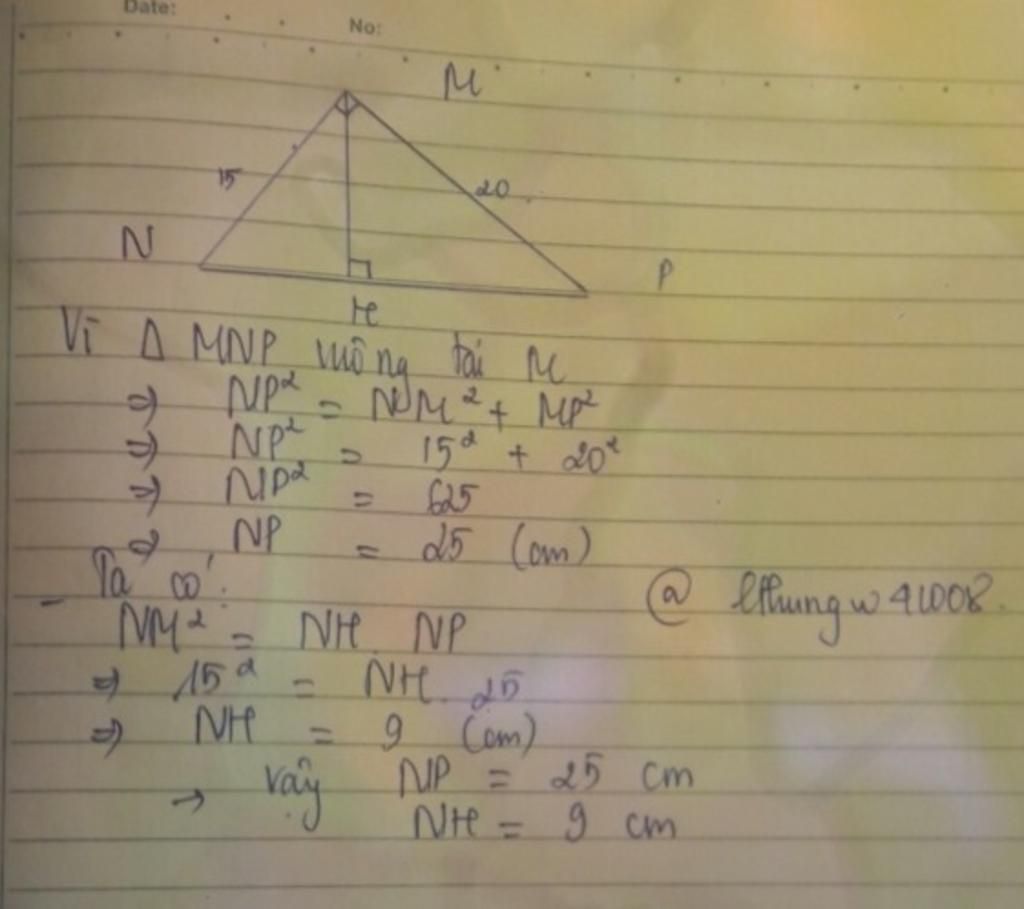 Date:
No:
M
15
20
N
P
H
Vì Δ MNP vuông tại M
=> NP² = NM² + MP²
=> NP² = 15² + 20²
=> NP² = 625
=> NP = 25 (cm)
- Ta có:
@
NM² = NH . NP
=> 15² = NH . 25
=> NH = 9 (cm)
→ Vậy NP = 25 cm
NH = 9 cm